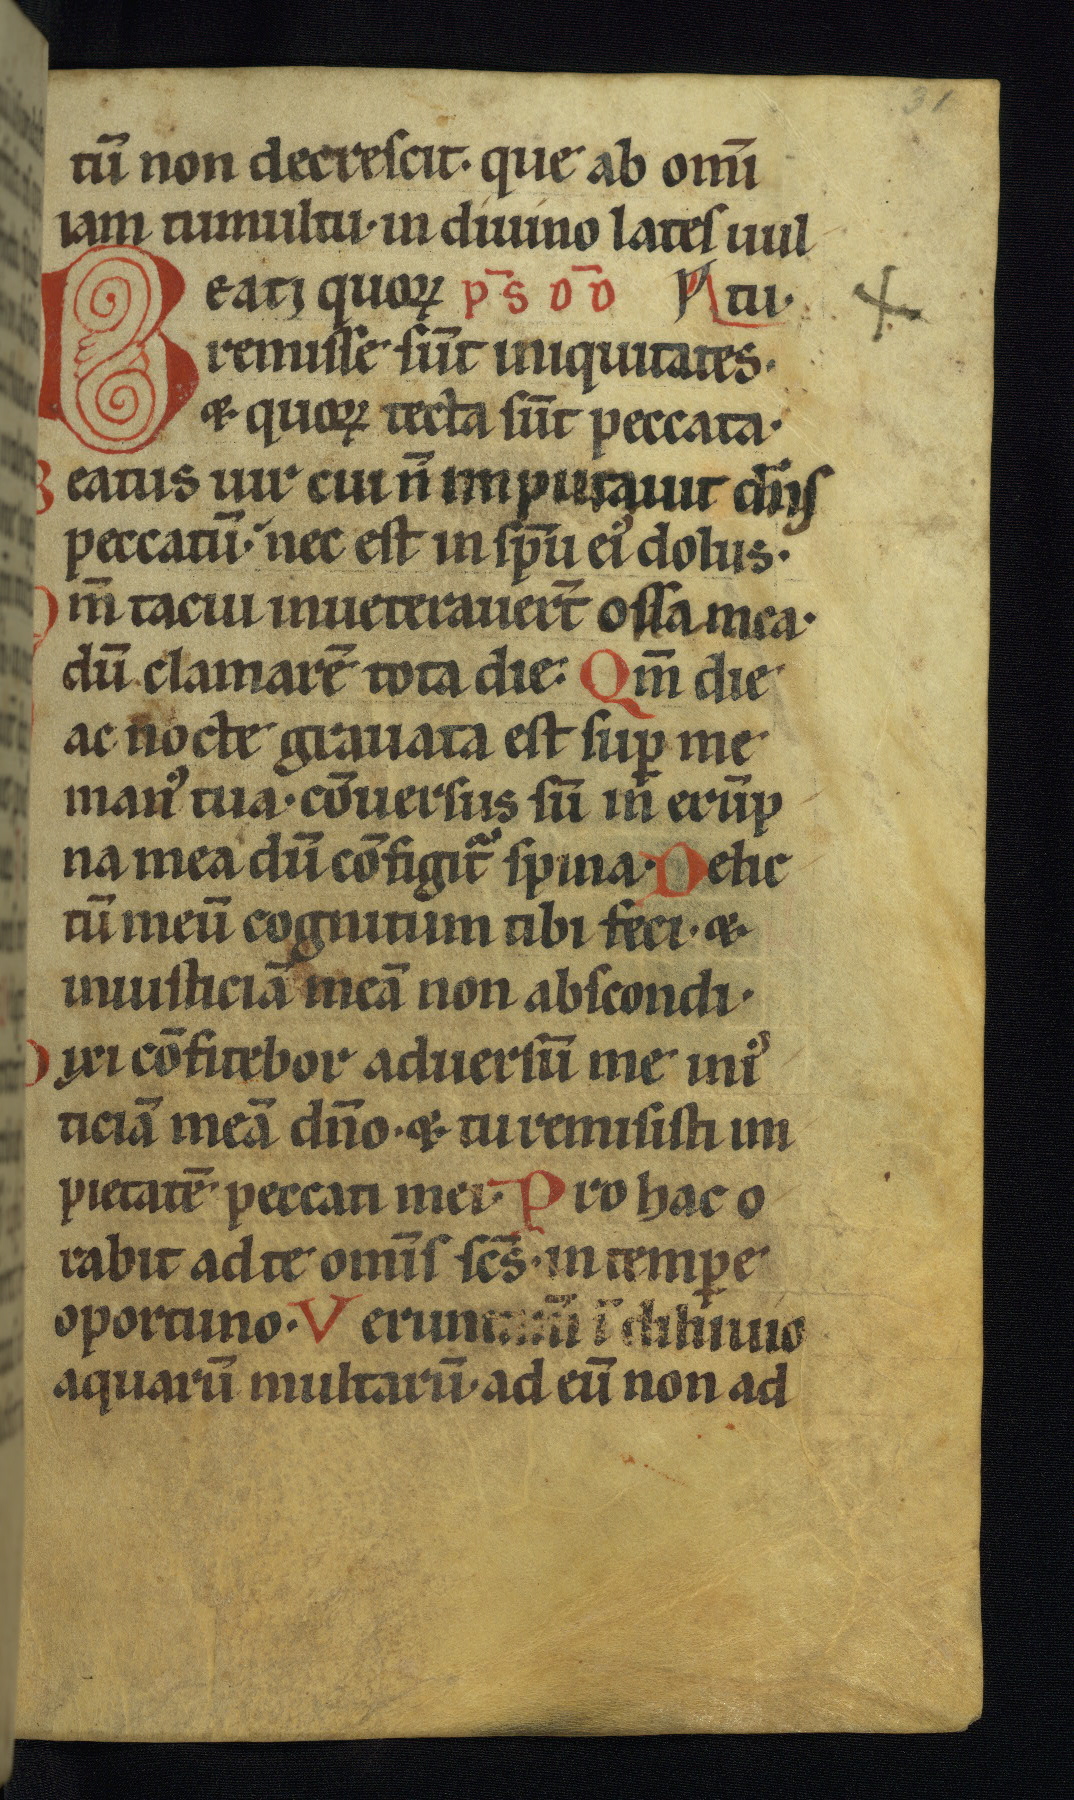 31
tū non decrescit. que ab omī
iam tumultu. in diuino lates uul
Beati quoꝝ ps̄ dd̄ A tu.
remisse sūt iniquitates.
& quoꝝ tecta sūt peccata.
Beatus uir cui n̄ imputauit dn̄s
peccatū. nec est in sp̄u eiꝰ dolus.
Qm̄ tacui inueterauert̄ ossa mea.
dū clamarē tota die. Qm̄ die
ac nocte grauata est sup̱ me
manꝰ tua. cōuersus sū in erūp
na mea dū cōfigit᷑ spina. Delic
tū meū cognitum tibi feci. &
iniusticiā meā non abscondi.
Dixi cōfitebor aduersū me iniꝰ
ticiā meā dn̄o. & tu remisisti im
pietatē peccati mei. Pro hac o
rabit ad te omīs sc̄s. in temp̱e
oportuno. Verun ī diluuio
aquarū multarū. ad eū non ad